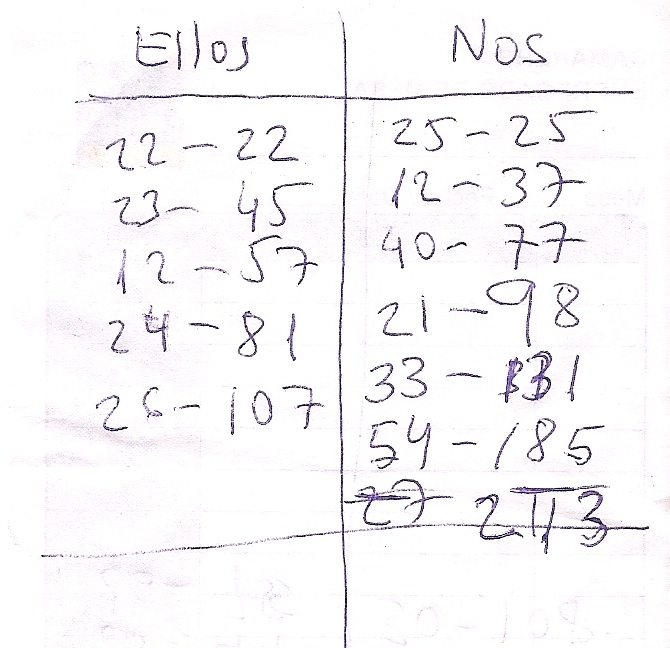 Ellos Nos
22 - 22 25 - 25
23 - 45 12 - 37
12 - 57 40 - 77
24 - 81 21 - 98
26 - 107 33 - 131
54 - 185
27